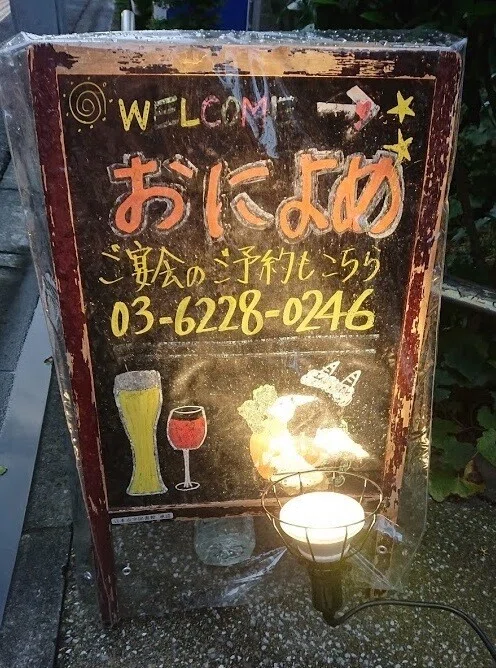 WELCOME →
おによめ
ご宴会のご予約もこちら
03-6228-0246